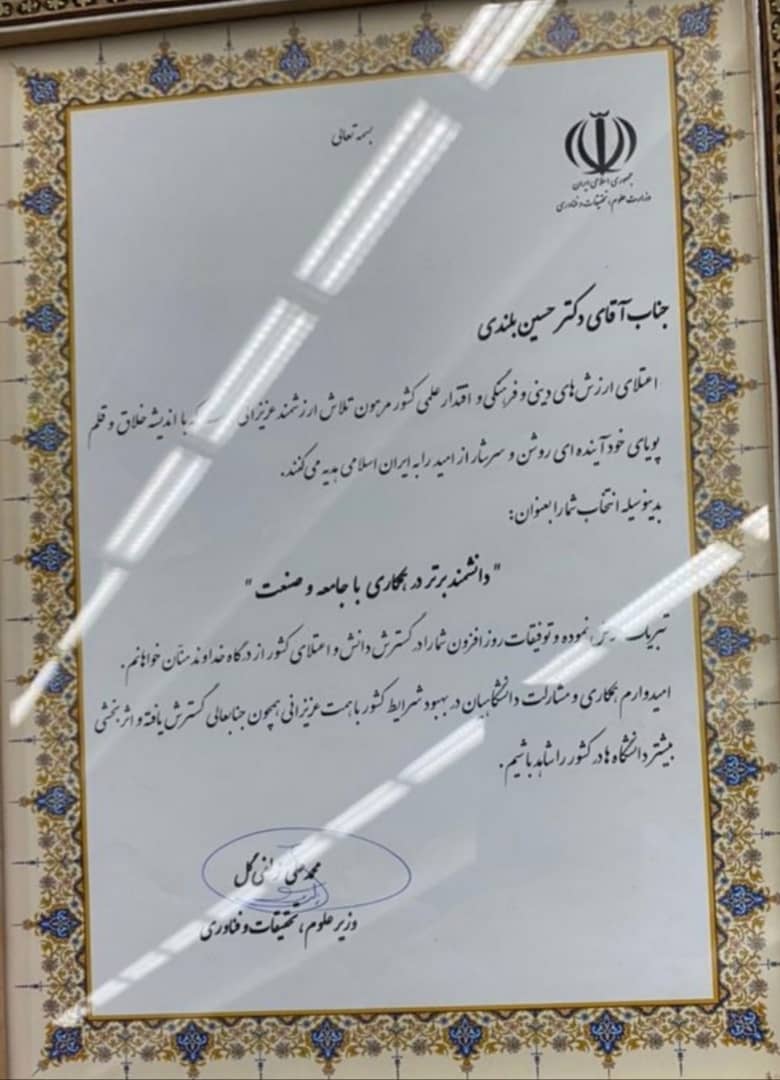 بسمه تعالی
جمهوری اسلامی ایران
وزارت علوم، تحقیقات و فناوری
جناب آقای دکتر حسین بلندی
اعتلای ارزش های دینی و فرهنگی و اقتدار علمی کشور مرهون تلاش ارزشمند عزیزانی که با اندیشه خلاق و قلم
پویای خود آینده ای روشن و سرشار از امید را به ایران اسلامی هدیه می کنند.
بدینوسیله انتخاب شما را بعنوان:
"دانشمند برتر در همکاری با جامعه و صنعت"
تبریک نموده و توفیقات روز افزون شما را در گسترش دانش و اعتلای کشور از درگاه خداوند منّان خواهانم.
امیدوارم همکاری و مشارکت دانشگاهیان در بهبود شرایط کشور با همت عزیزانی همچون جنابعالی گسترش یافته و اثربخشی
بیشتر دانشگاه ها در کشور را شاهد باشیم.
محمد علی زلفی گل
وزیر علوم، تحقیقات و فناوری